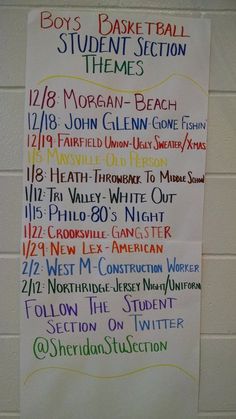 BOYS BASKETBALL
STUDENT SECTION
THEMES
12/8: MORGAN-BEACH
12/18: JOHN GLENN-GONE FISHIN'
12/19: FAIRFIELD UNION-UGLY SWEATER/XMAS
1/5 MAYSVILLE-OLD PERSON
1/8: HEATH-THROWBACK TO MIDDLE SCHOOL
1/12: TRI VALLEY-WHITE OUT
1/15: PHILO-80'S NIGHT
1/22: CROOKSVILLE-GANGSTER
1/29: NEW LEX-AMERICAN
2/2: WEST M-CONSTRUCTION WORKER
2/12: NORTHRIDGE-JERSEY NIGHT/UNIFORM
FOLLOW THE STUDENT
SECTION ON TWITTER
@SHERIDANSTUSECTION